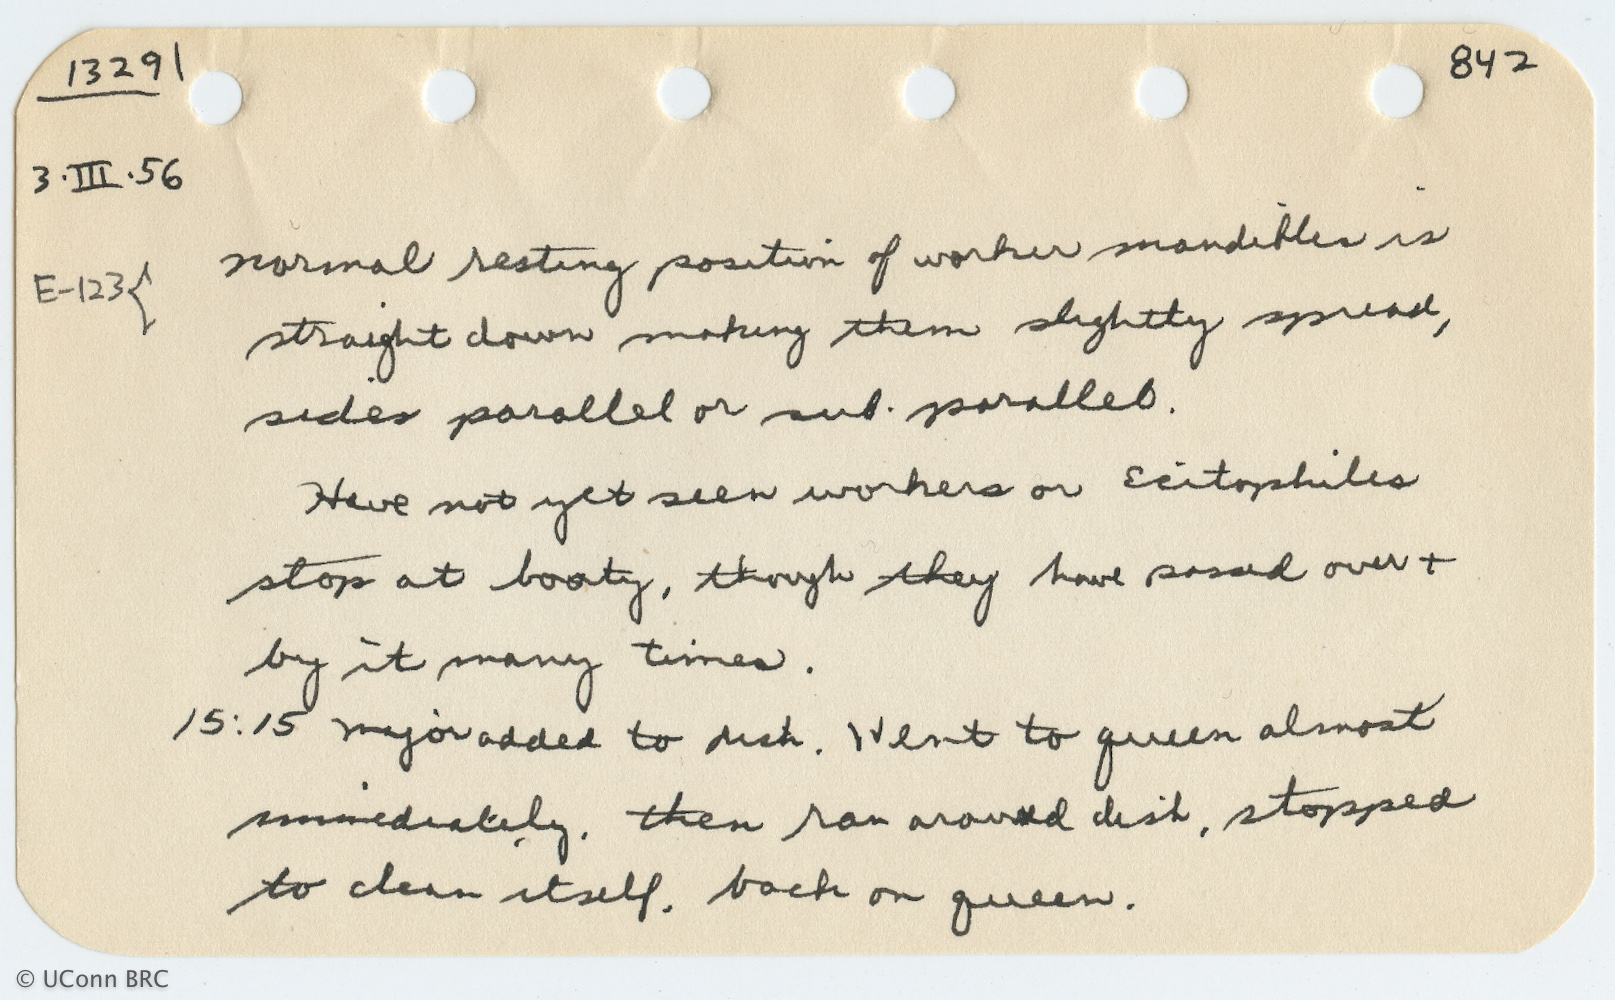 13291
842
3·III·56
E-123{
normal resting position of worker mandibles is
straight down making them slightly spread,
sides parallel or sub. parallel.
Have not yet seen workers or Ecitophiles
stop at booty, though they have passed over +
by it many times.
15:15 major added to dish. Went to queen almost
immediately. then ran around dish, stopped
to clean itself. back on queen.
© UConn BRC